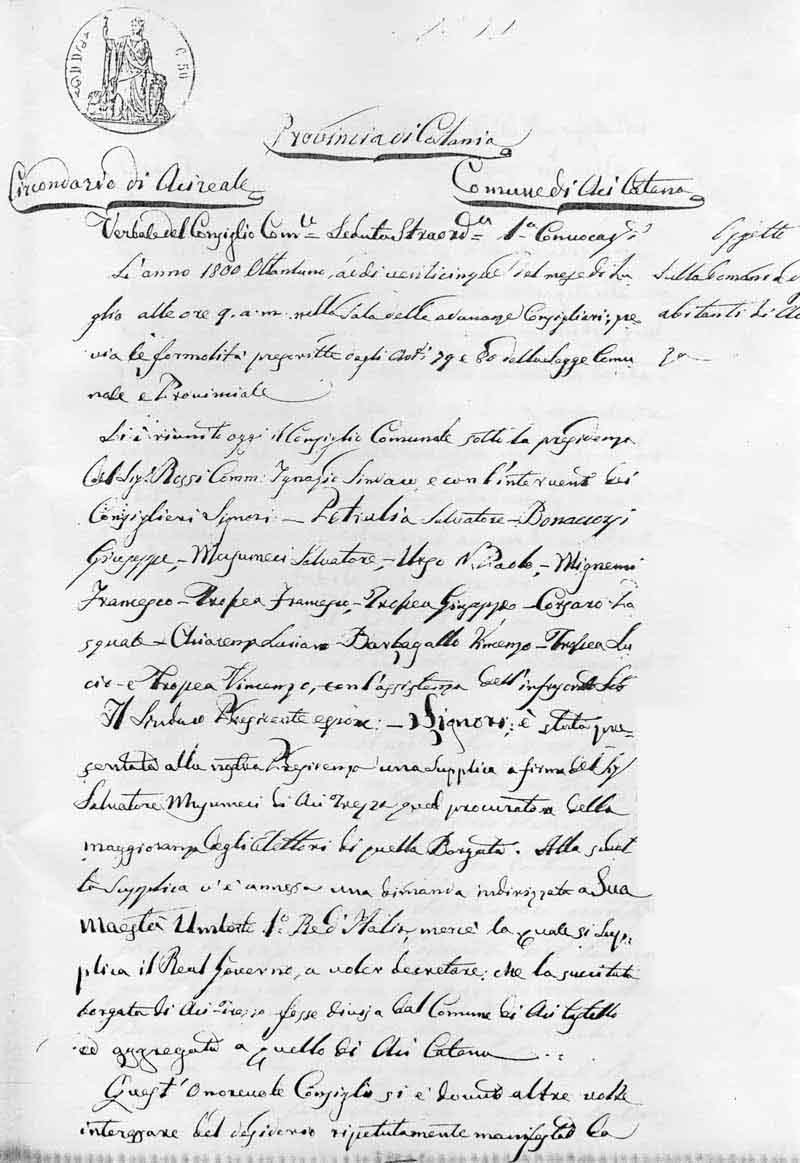 C. 50
Provincia di Catania
Circondario di Acireale
Comune di Aci Catena
Verbale del Consiglio Com.le Seduta Straord.ria 1.a Convocaz.e
Oggetto
L'anno 1800 Ottantuno, addì venticinque del mese di Lu
Sulla domanda
glio alle ore 9. a. m. nella Sala delle adunanze Consigliari; pre
abitanti di
via le formalità prescritte dagli Art.i 79 e 80 della Legge Comu
za
nale e Provinciale
Si è riunito oggi il Consiglio Comunale sotto la presidenza
del Sig.r Rossi Comm: Ignazio Sindaco e con l'intervento dei
Consiglieri Signori: Petralia Salvatore - Bonaccorsi
Giuseppe, - Musumeci Salvatore, - Urso N. Paolo, - Mignemi
Francesco - Tropea Francesco, - Tropea Giuseppe - Corsaro Pa
squale - Chiarenza Luciano - Barbagallo Vincenzo - Tropea Lu
cio - e Tropea Vincenzo, con l'assistenza dell'infrascritto Seg
Il Sindaco Presidente espone: - Signori: è stata pre
sentata alla nostra Presidenza una supplica a firma del Sig
Salvatore Musumeci di Aci Trezza qual procuratore della
maggioranza degli elettori di quella Borgata. Alla sudet
ta supplica v'è annessa una dimanda indirizzata a Sua
Maestà Umberto 1.o Re d'Italia, mercè la quale si sup
plica il Real Governo, a voler decretare: che la succitata
borgata di Aci Trezza fosse divisa dal Comune di Aci Castello
ed aggregata a quello di Aci Catena
Quest'Onorevole Consiglio si è dovuto altre volte
interessare del desiderio ripetutamente manifestato da